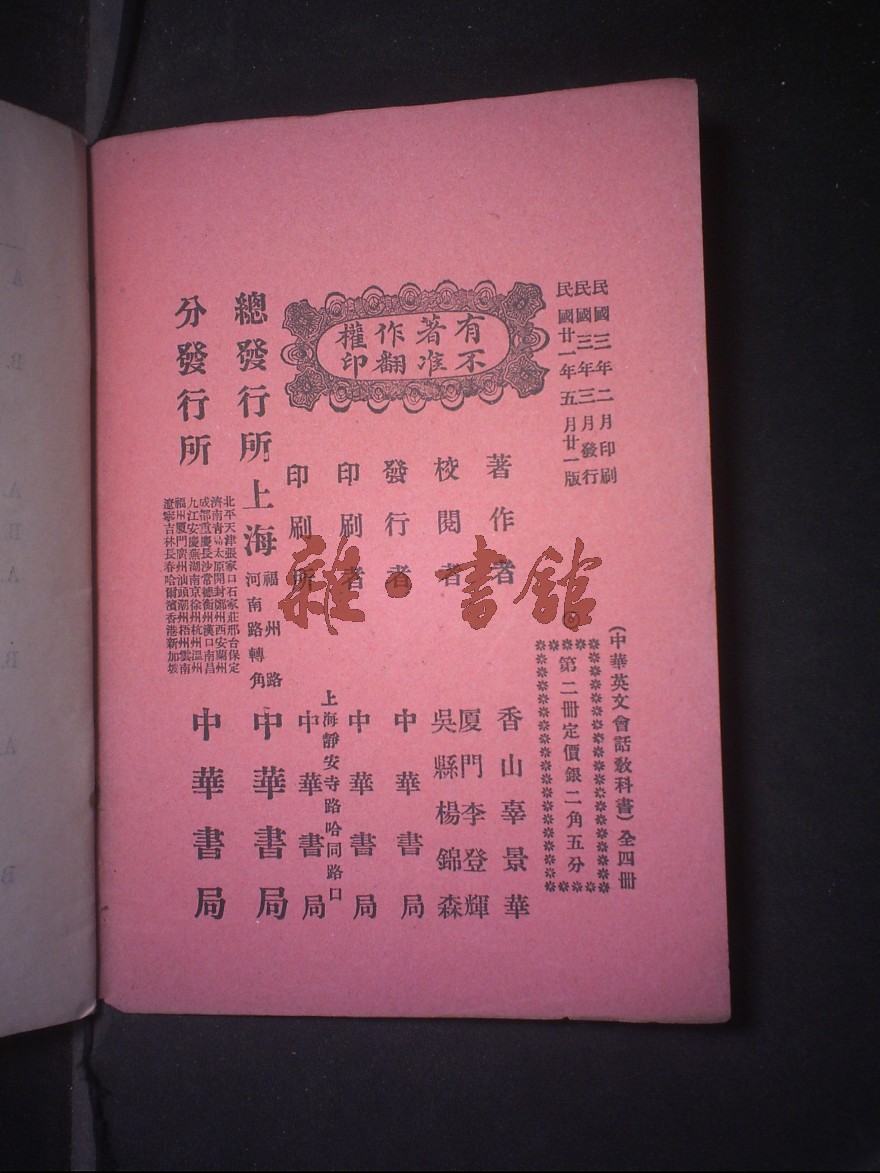 民國三年二月印刷
民國三年三月發行
民國廿一年五月廿一版
有著作權
不准翻印
(中華英文會話教科書)全四冊
第二冊定價銀二角五分
著作者 香山辜景華
校閱者 厦門李登輝
吳縣楊錦森
發行者 中華書局
印刷者 中華書局
上海靜安寺路哈同路口
印刷所 中華書局
總發行所 上海 福州路
河南路轉角 中華書局
分發行所
北平天津張家口石家莊邢台保定
濟南青島太原開封鄭州西安蘭州
成都重慶長沙常德衡州漢口南昌
九江安慶蕪湖南京徐州杭州溫州
福州厦門廣州汕頭潮州梧州雲南
遼寧吉林長春哈爾濱香港新加坡
中華書局
雜·書館
A.
B.
A.
B
A.
B.
A.
B